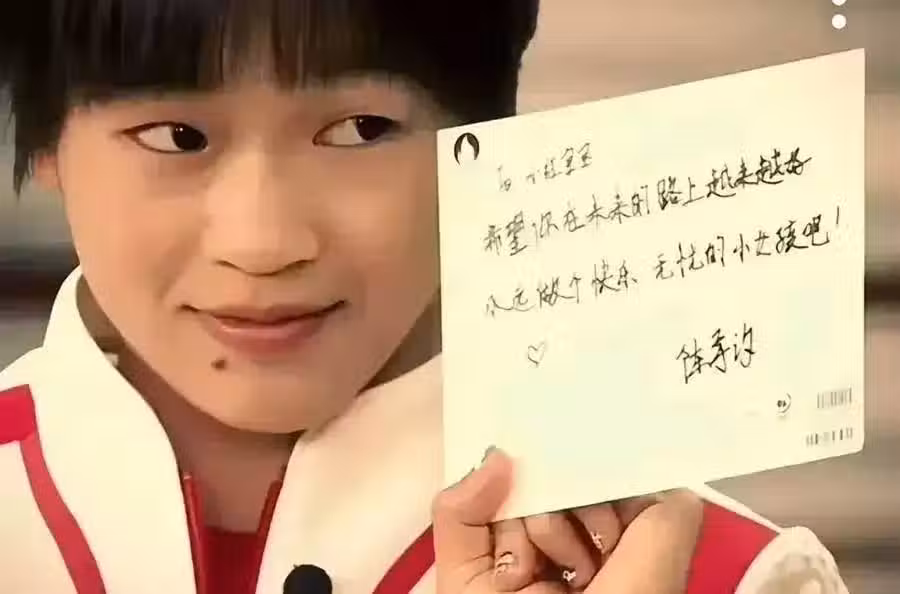 To
希望你在未来的路上越来越好
永远做个快乐 无忧的小女孩吧！
♡ 陈芋汐